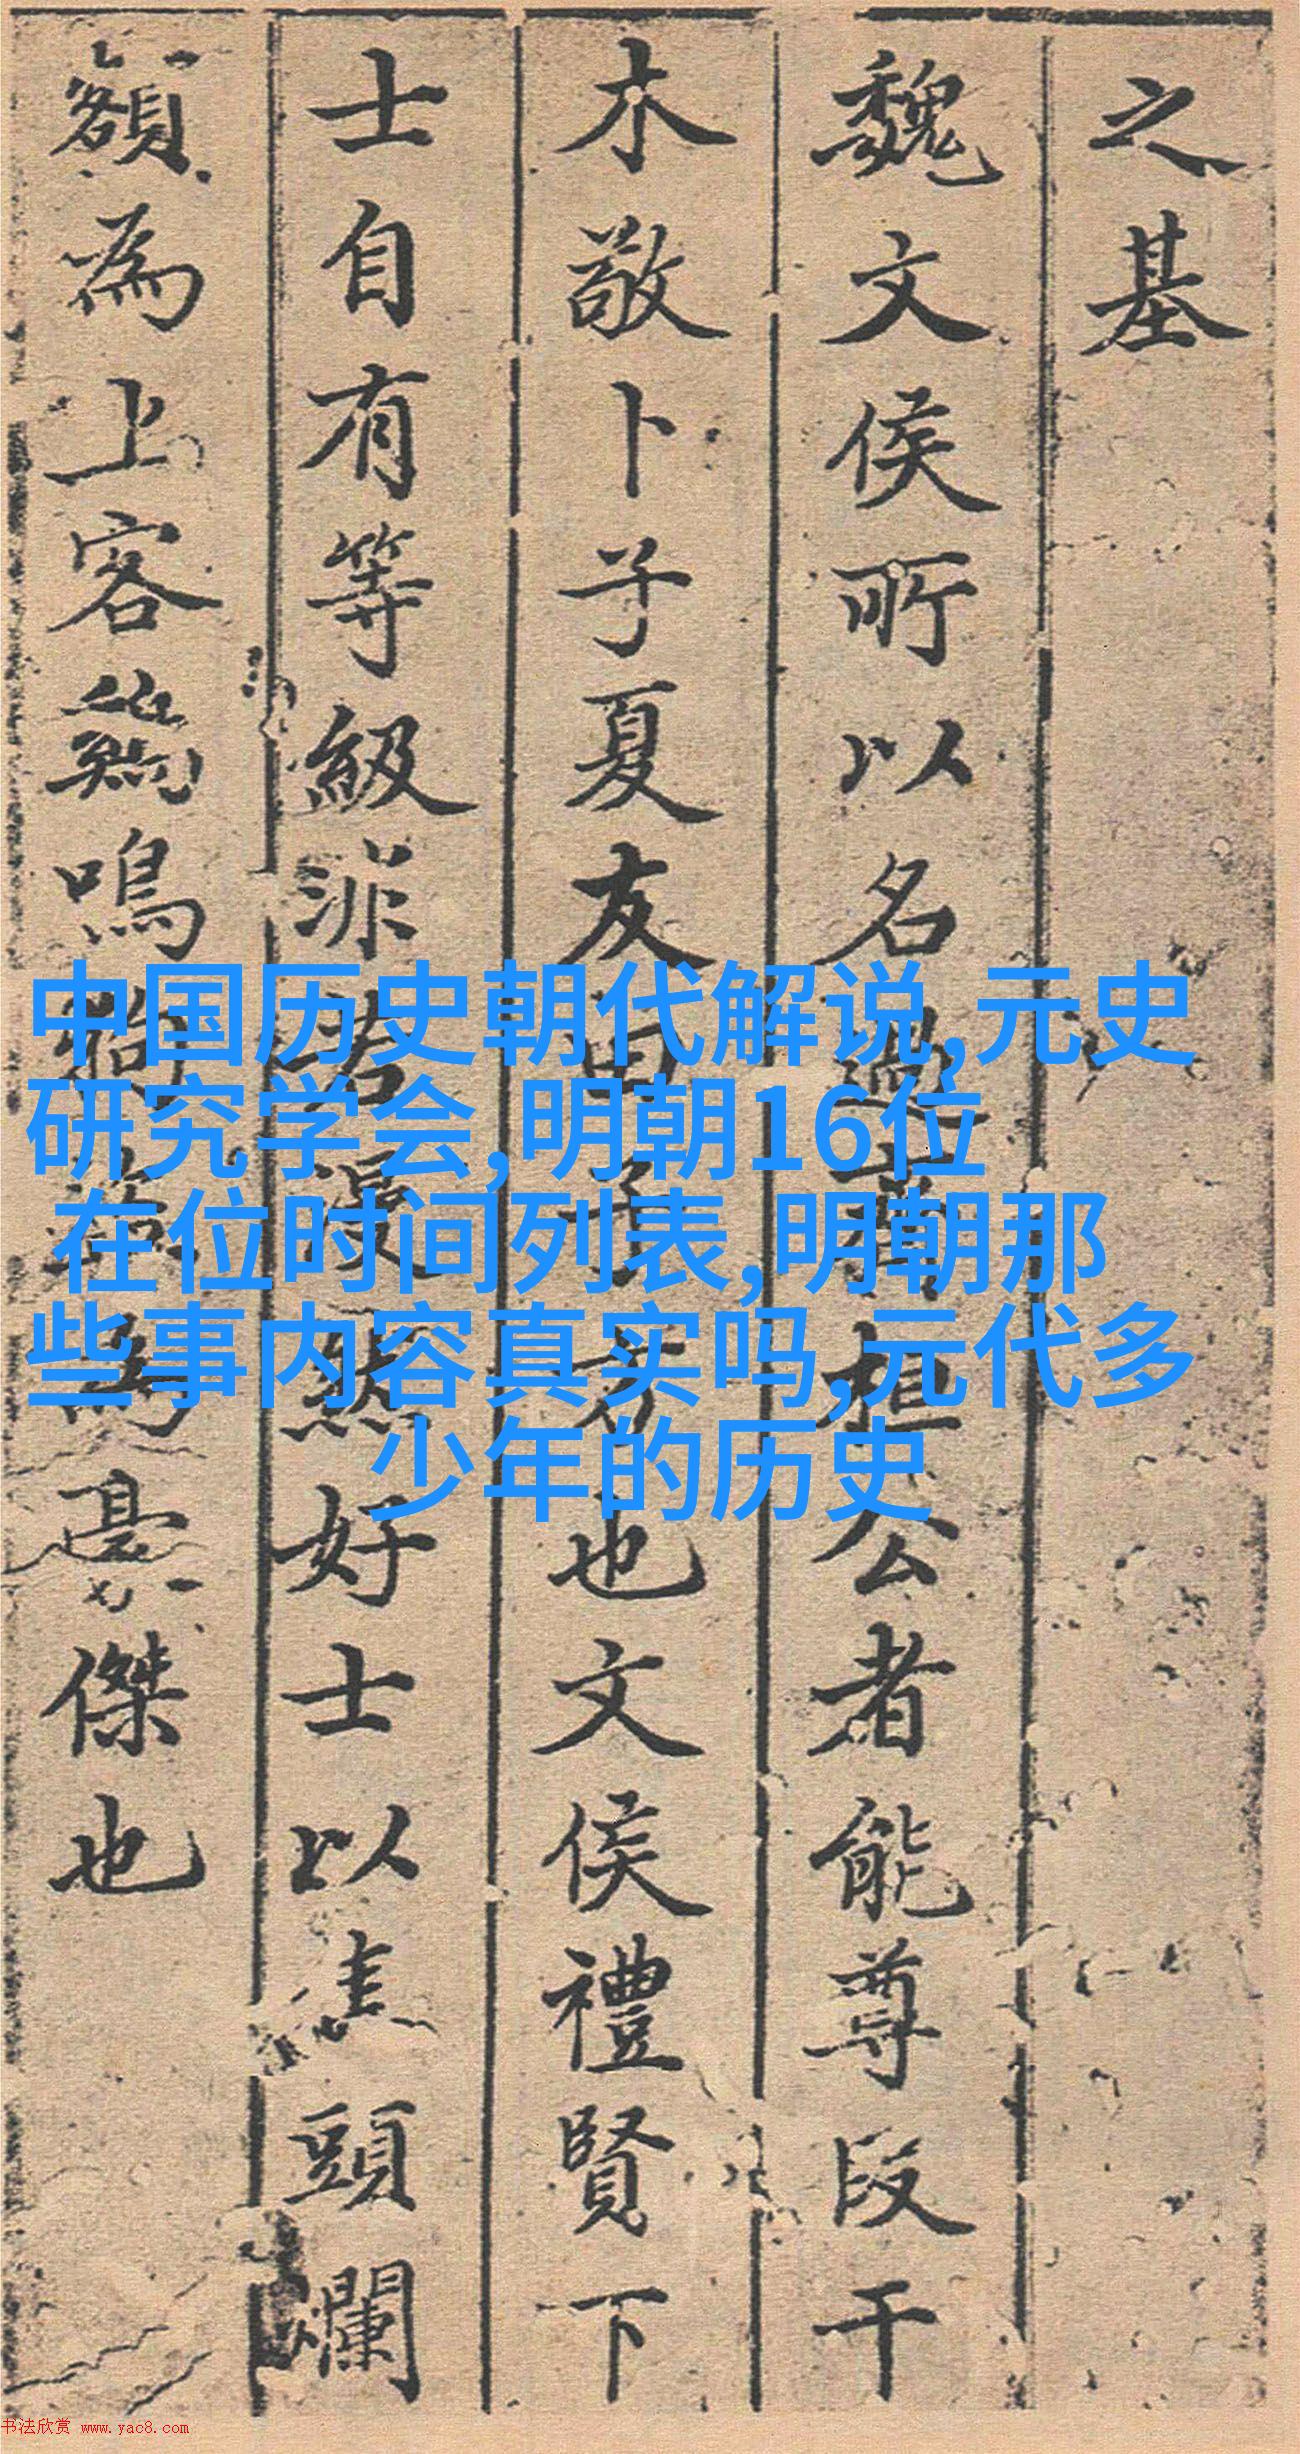 之基
魏文侯所以名過齊桓公者能尊段干
木敬卜子夏友田子方也文侯禮賢下
士自有等級非若漫然好士以焦頭爛
額為上客鷄鳴狗盜為豪傑也
中国历史朝代解说,元史
研究学会,明朝16位
在位时间列表,明朝那
些事内容真实吗,元代多
少年的历史
书法欣赏 www.yac8.com